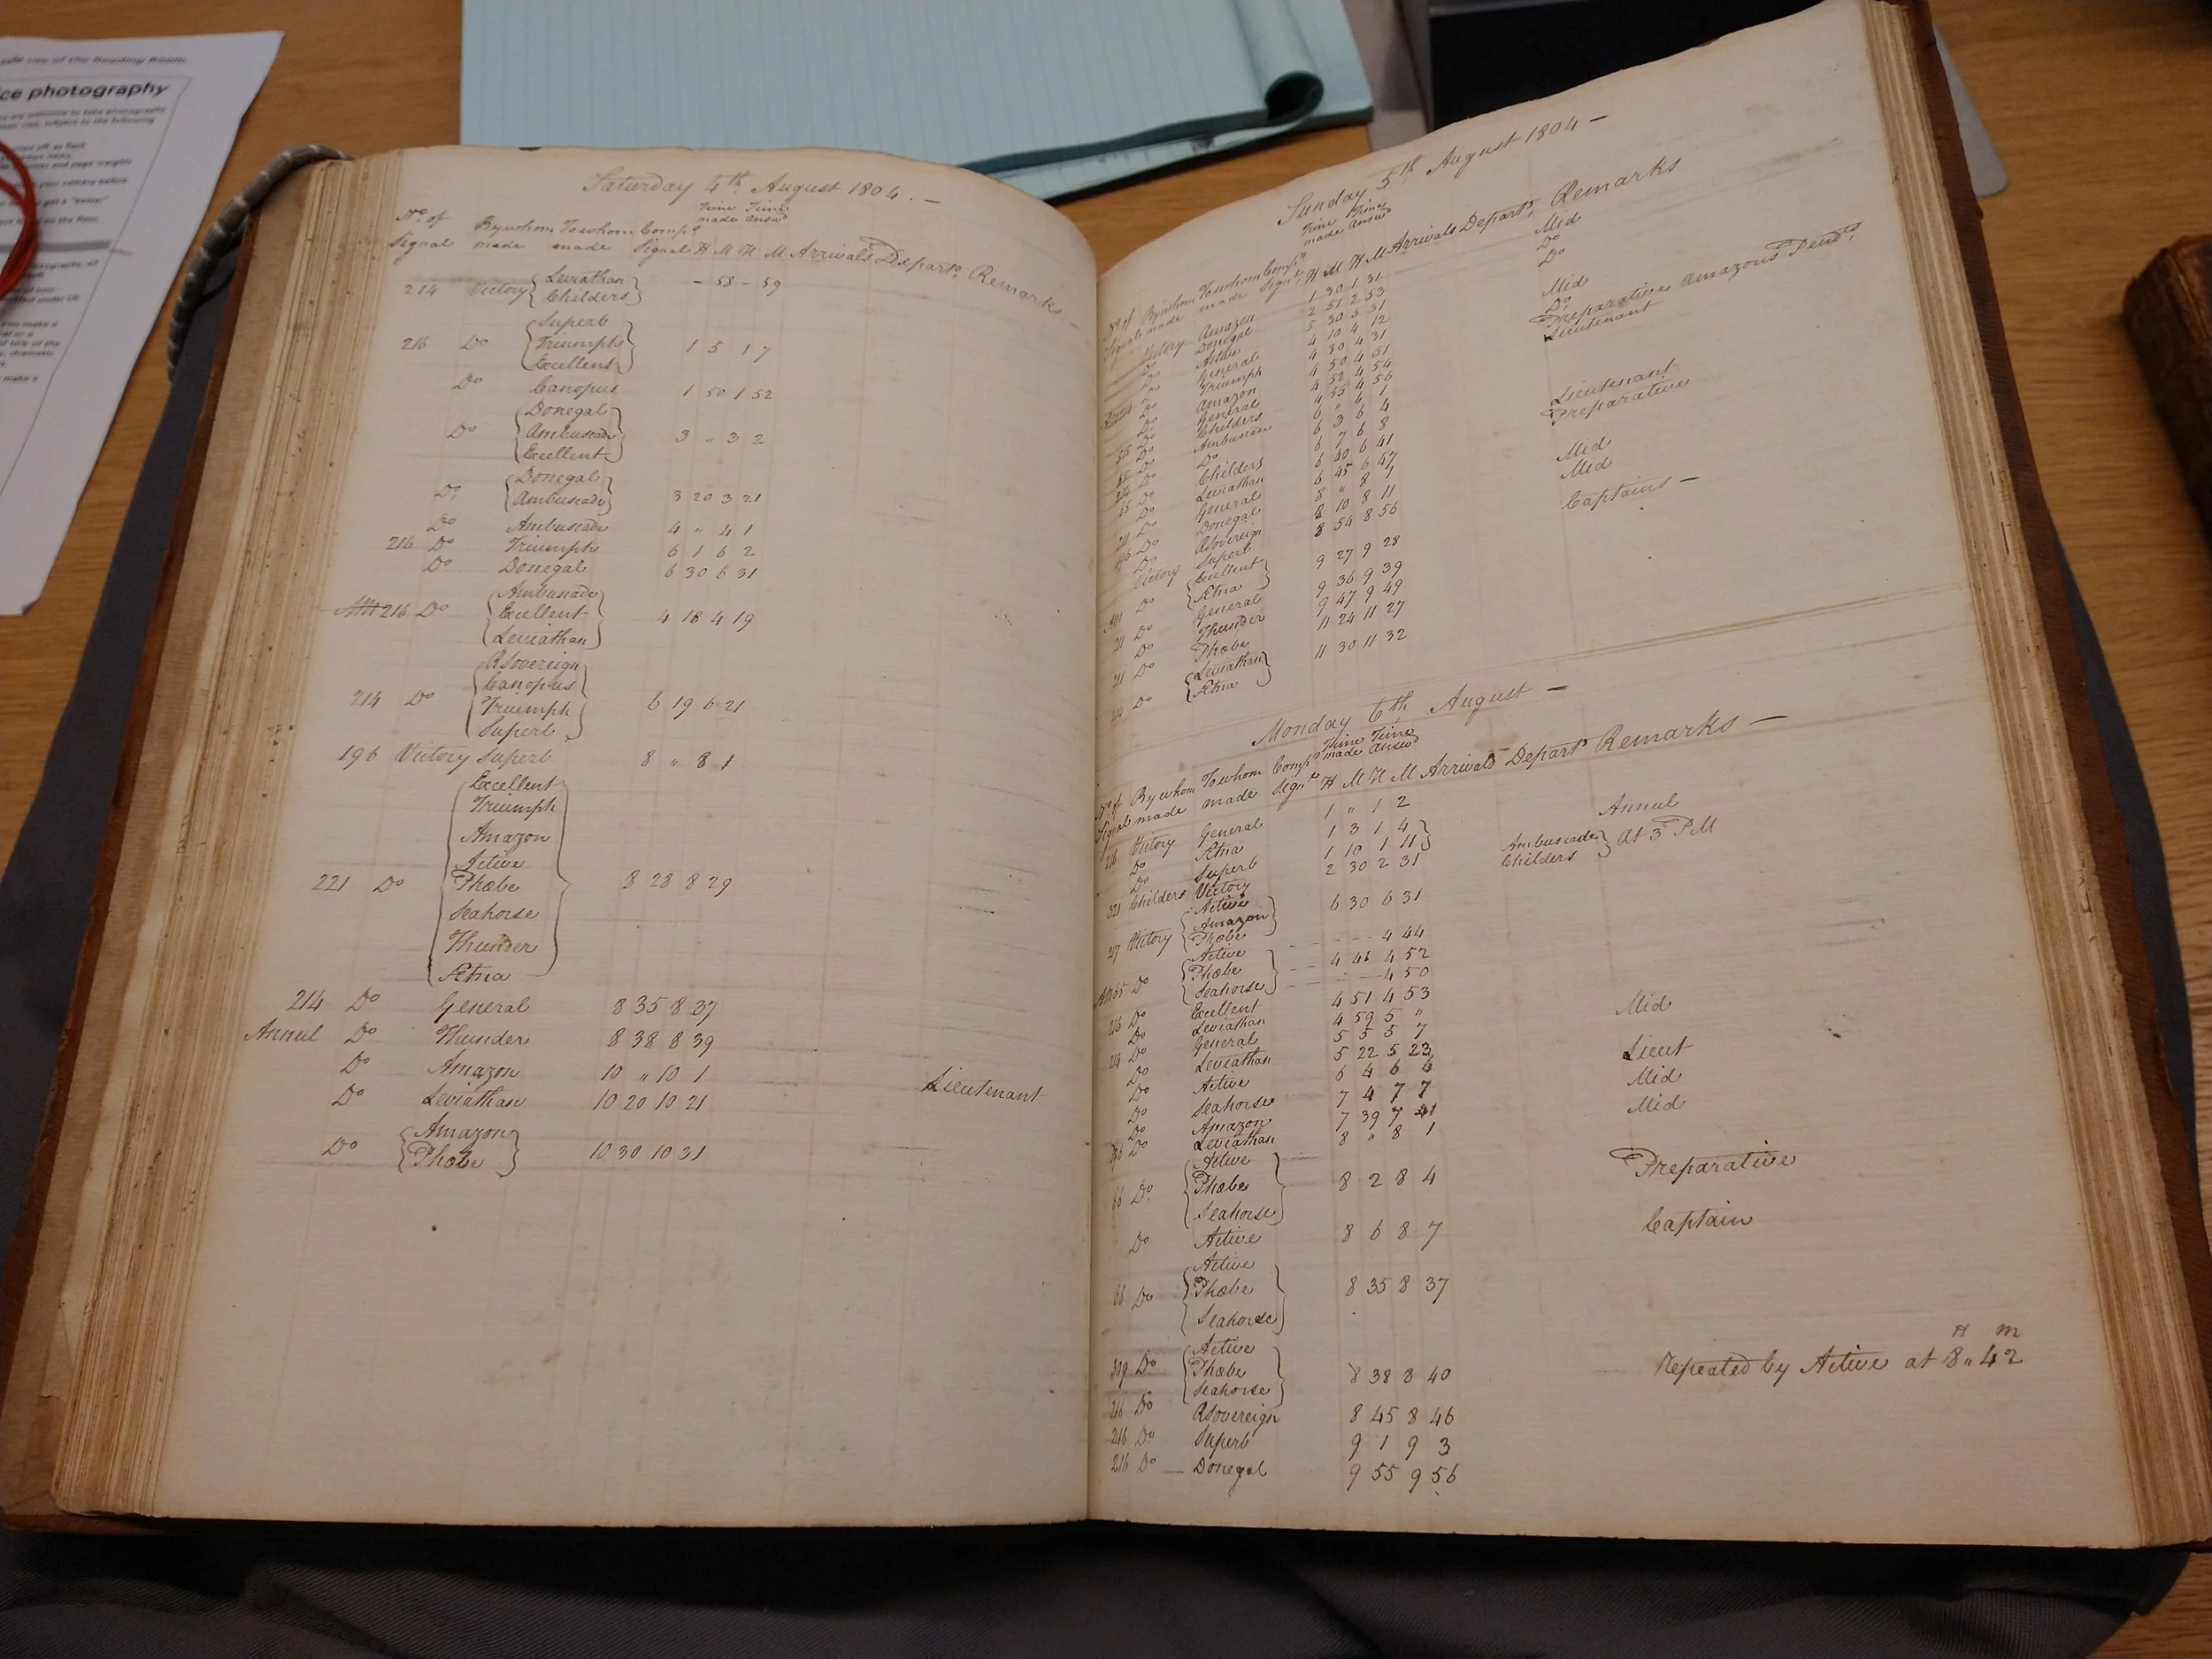 safe use of the Reading Room.
ce photography
Saturday 4th August 1804. —
No. of By whom To whom Comps Time Time
Signal made made Signal made answd H M H M Arrivals Departs Remarks —
214 Victory { Leviathan
Childers } - 58 - 59
Superb
216 Do { Triumph } 1 5 1 7
Excellent
Do Canopus 1 50 1 52
Donegal
Do { Ambuscade } 3 " 3 2
Excellent
Donegal
Do { Ambuscade } 3 20 3 21
Do Ambuscade 4 " 4 1
216 Do Triumph 6 1 6 2
Do Donegal 6 30 6 31
Ambuscade
216 Do { Excellent } 4 18 4 19
Leviathan
RSovereign
Canopus
214 Do { Triumph } 6 19 6 21
Superb
196 Victory Superb 8 " 8 1
Excellent
Triumph
Amazon
Active
221 Do { Phœbe } 8 28 8 29
Seahorse
Thunder
Ætna
214 Do General 8 35 8 37
Annul Do Thunder 8 38 8 39
Do Amazon 10 " 10 1
Do Leviathan 10 20 10 21 Lieutenant
Do { Amazon
Phœbe } 10 30 10 31
Sunday 5th August 1804 —
Time Time
made answd
No. of By whom To whom Comps
Signal made made Signl H M H M Arrivals Departs Remarks
Victory Amazon 1 30 1 31 Mid
Do Donegal 2 51 2 53 Do
Do Active 5 30 5 31 Do
Do General 4 10 4 12
Do Triumph 4 30 4 31 Mid
Do Amazon 4 50 4 51 Do
Do General 4 52 4 54 Preparative Amazons Pendts
Do Childers 4 55 4 56 Lieutenant
Do Ambuscade 6 " 6 1
Do Do 6 3 6 4
Do Childers 6 7 6 8 Lieutenant
Do Leviathan 6 40 6 41 Preparative
Do General 6 45 6 47
Do Donegal 8 " 8 1 Mid
Do RSovereign 8 10 8 11 Mid
Victory Superb 8 54 8 56 Captains —
Do { Excellent
Ætna } 9 27 9 28
Do General 9 36 9 39
Do Thunder 9 47 9 49
Do Phœbe 11 24 11 27
Do { Leviathan
Ætna } 11 30 11 32
Monday 6th August —
Time Time
made answd
No. of By whom To whom Comps
Signal made made Signl H M H M Arrivals Departs Remarks —
216 Victory General 1 " 1 2
Do Ætna 1 3 1 4 Annul
Do Superb 1 10 1 11
321 Childers Victory 2 30 2 31 Ambuscade
Childers } At 3 PM
Active
Victory { Amazon } 6 30 6 31
Phœbe
Active 4 44
Do { Phœbe } 4 46 4 52
Seahorse 4 50
216 Do Excellent 4 51 4 53
Do Leviathan 4 59 5 " Mid
214 Do General 5 5 5 7
Do Leviathan 5 22 5 23 Lieut
Do Active 6 4 6 6 Mid
Do Seahorse 7 4 7 7 Mid
Do Amazon 7 39 7 41
Do Leviathan 8 " 8 1
Active
66 Do { Phœbe } 8 2 8 4 Preparative
Seahorse
Do Active 8 6 8 7 Captain
Active
66 Do { Phœbe } 8 35 8 37
Seahorse
Active H m
Do { Phœbe } 8 38 8 40 Repeated by Active at 8 " 42
Seahorse
216 Do RSovereign 8 45 8 46
216 Do Superb 9 1 9 3
216 Do — Donegal 9 55 9 56